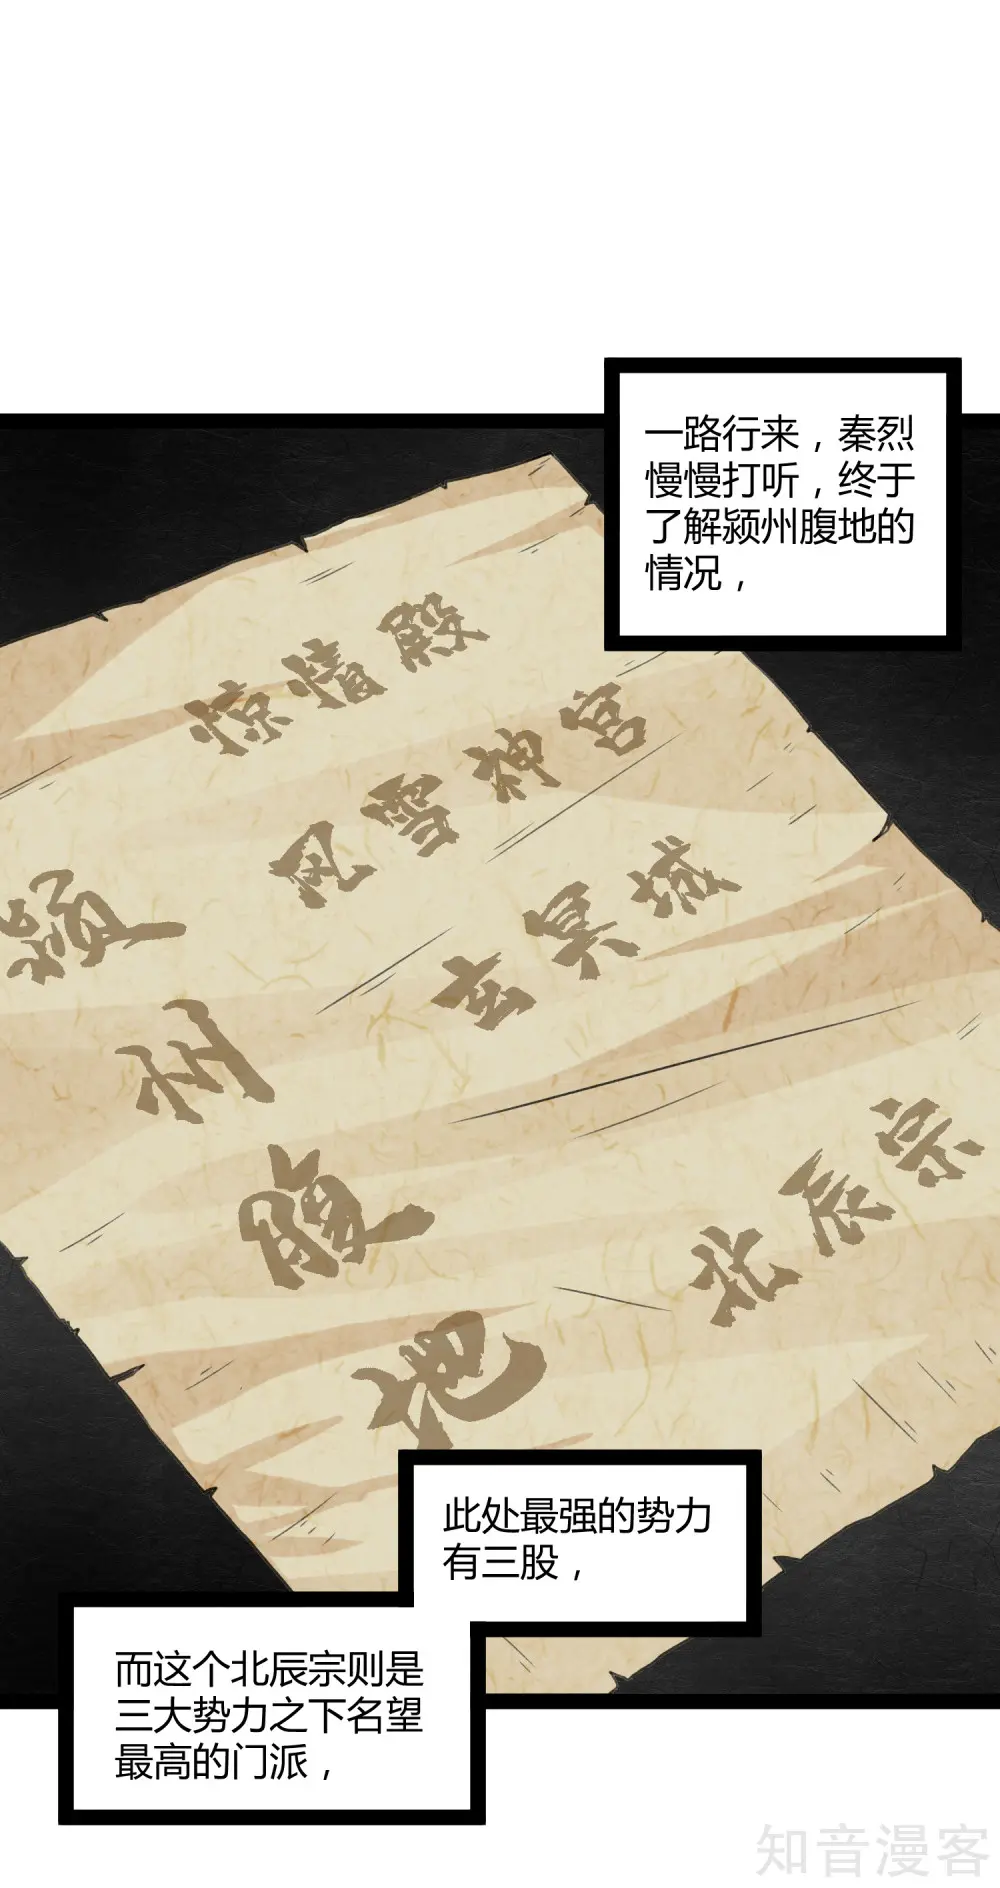 一路行来，秦烈
慢慢打听，终于
了解颍州腹地的
情况，
惊情殿
风雪神宫
玄冥域
颍州腹地
北辰宗
此处最强的势力
有三股，
而这个北辰宗则是
三大势力之下名望
最高的门派，
知音漫客